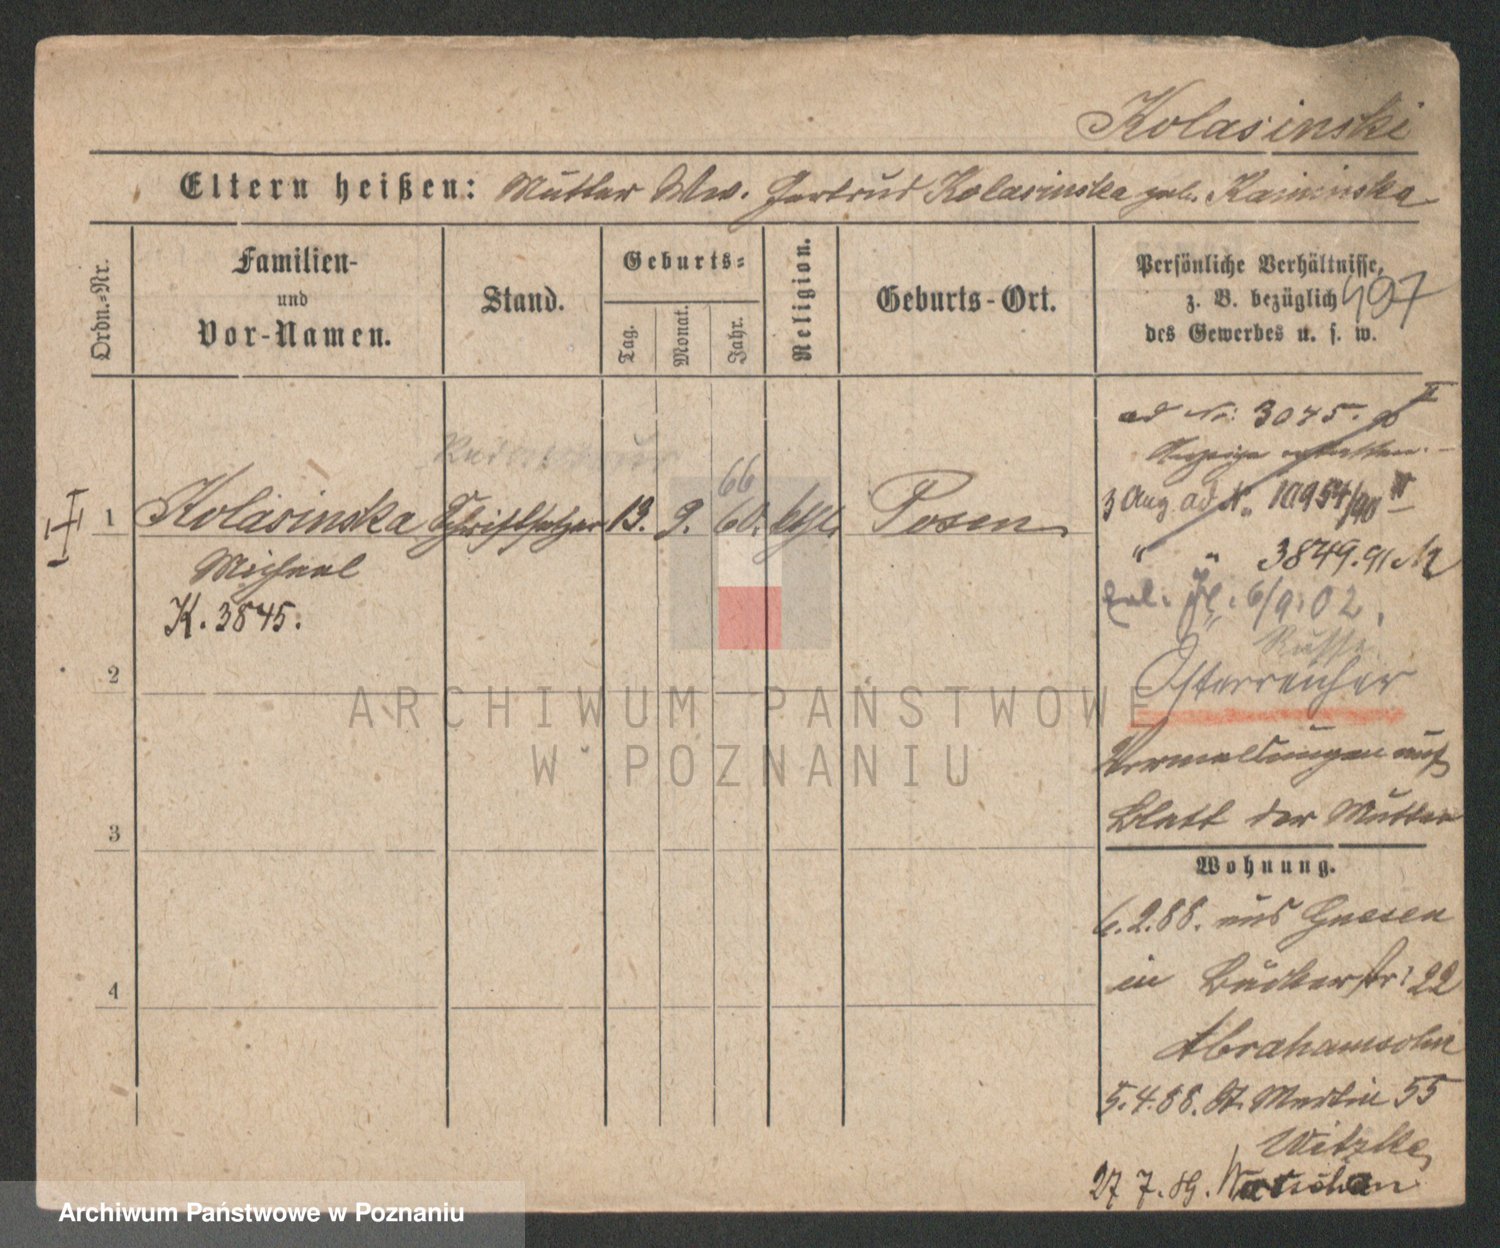 Kolasinski
Eltern heißen: Mutter Ww. Gertrud Kolasinska geb. Kaminska
Ordn.-Nr.
Familien-
und
Vor-Namen.
Stand.
Geburts-
Tag.
Monat.
Jahr.
Religion.
Geburts-Ort.
Persönliche Verhältnisse,
z. B. bezüglich
des Gewerbes u. s. w.
497
ad Nr: 3045.
Anzeige
66
1 Kolasinska Schriftsetzer 13. 9. 60. kath. Posen
Michael
K. 3845.
3 Aug. ad N. 10954/90 IV
" " 3849.91
6/9.02.
Russe
Österreicher
2
Vermeldungen auf
Blatt der Mutter
3
Wohnung.
6.2.88. aus Gnesen
in Bäckerstr: 22
4
Abrahamsohn
5.4.88. St. Martin 55
Witzke
27 7. Warschau
ARCHIWUM PAŃSTWOWE
W POZNANIU
Archiwum Państwowe w Poznaniu